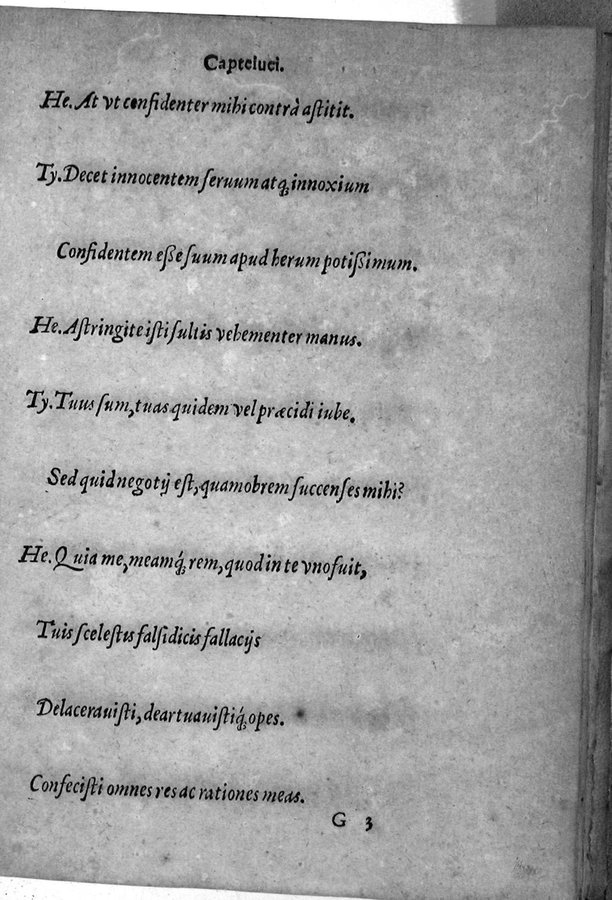 Capteiuei.
He. At vt confidenter mihi contrà aſtitit.
Ty. Decet innocentem ſeruum atq́; innoxium
Confidentem eſſe ſuum apud herum potiſſimum.
He. Aſtringite iſti ſultis vehementer manus.
Ty. Tuus ſum, tuas quidem vel præcidi iube.
Sed quid negotij eſt, quamobrem ſuccenſes mihi?
He. Quia me, meamq́; rem, quod in te vno fuit,
Tuis ſceleſtis falſidicis fallacijs
Delacerauiſti, deartuauiſtiq́; opes.
Confeciſti omnes res ac rationes meas.
G 3